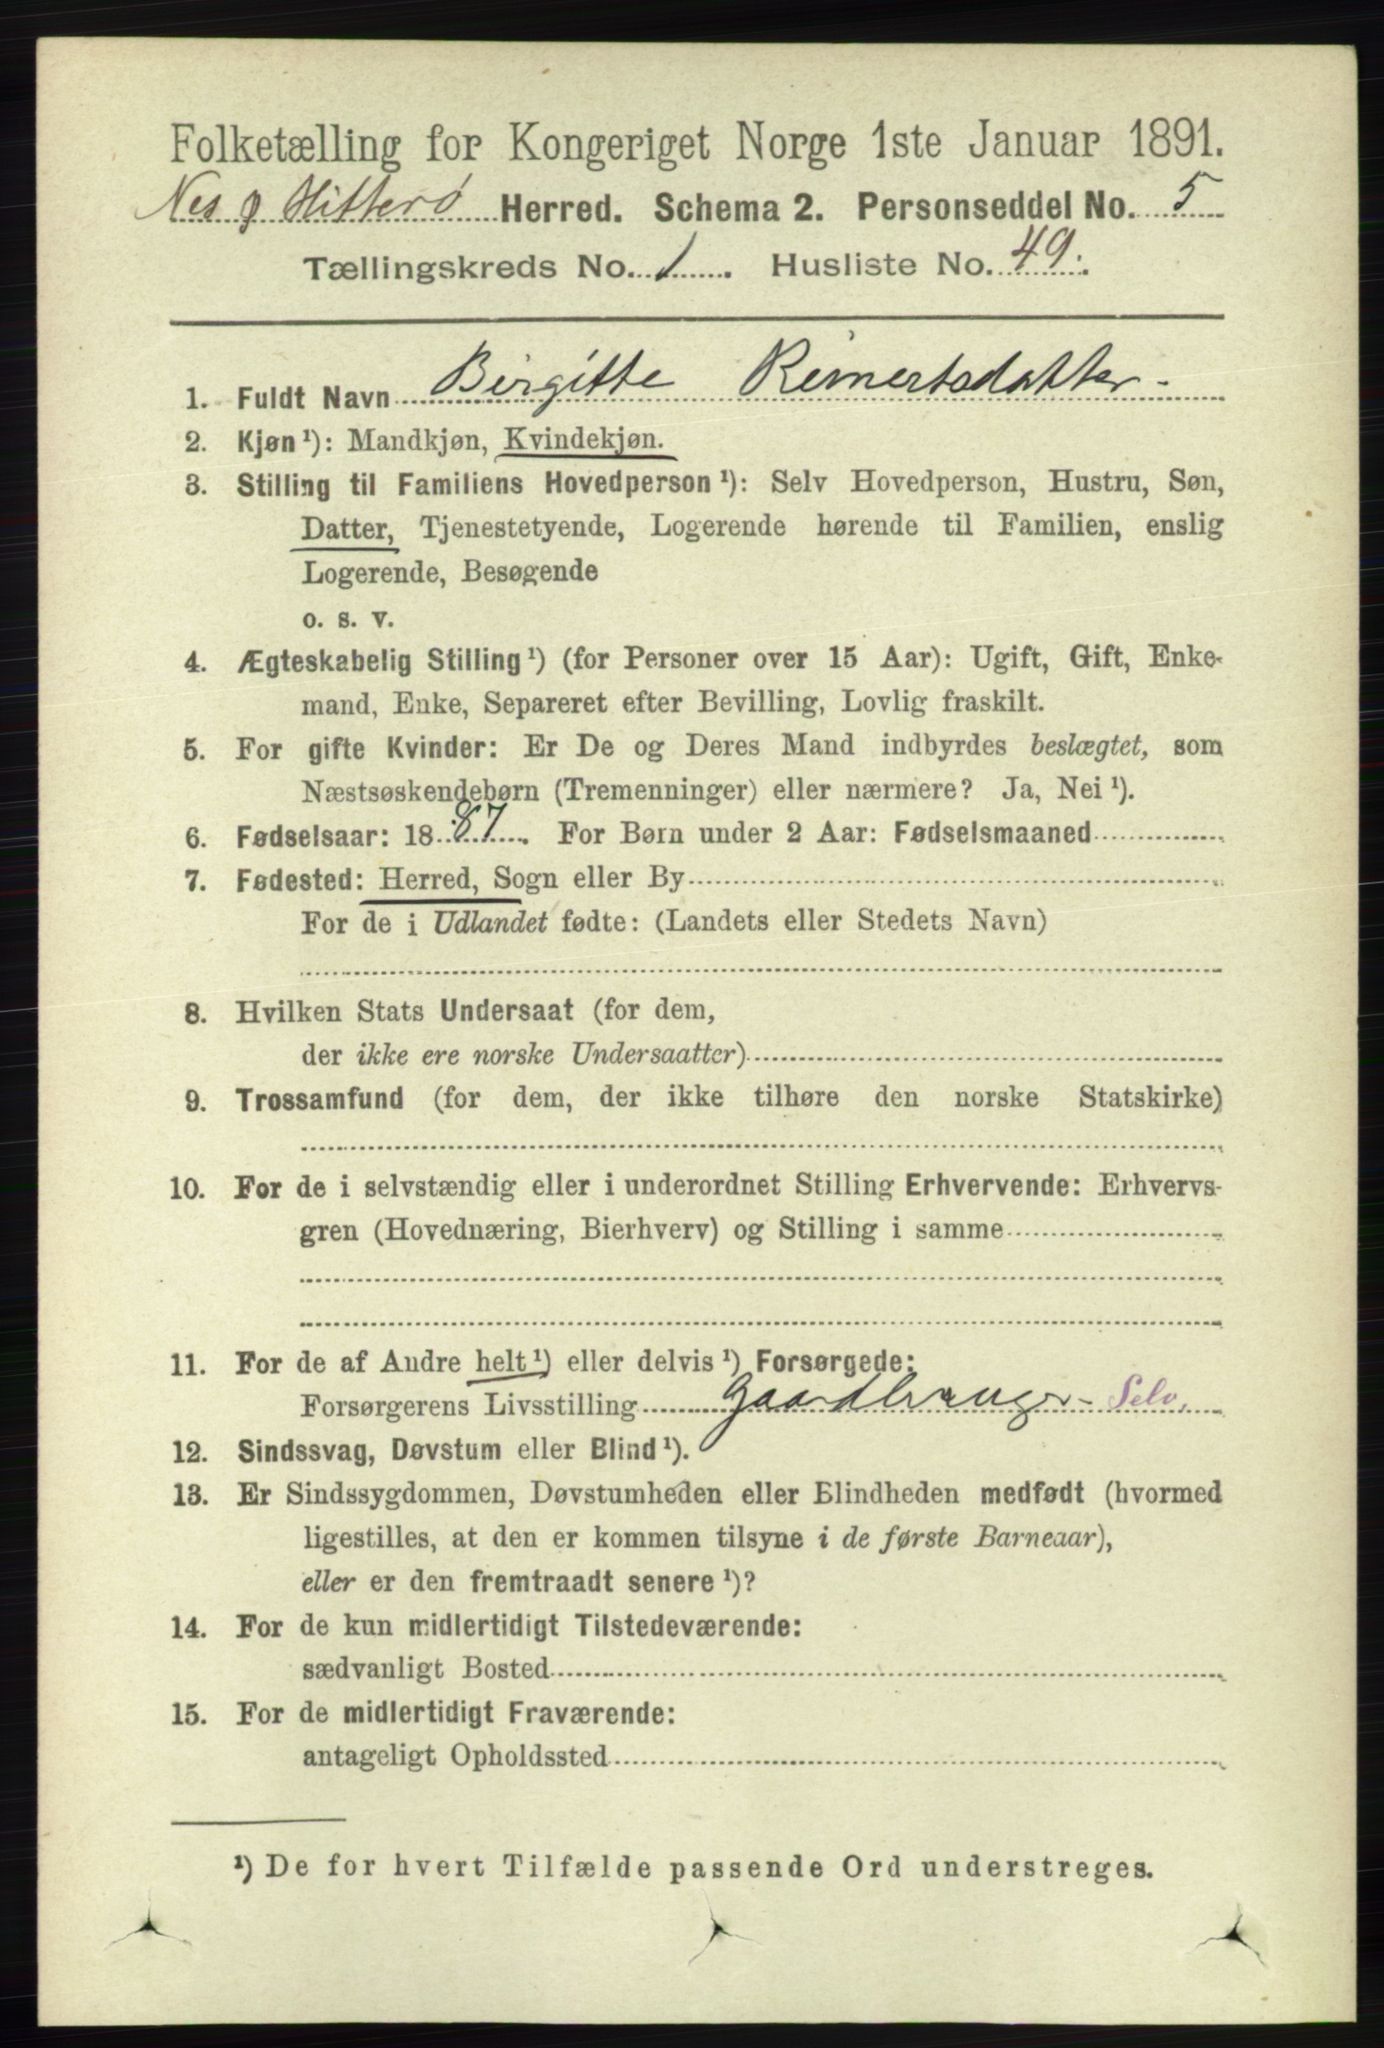 Folketælling for Kongeriget Norge 1ste Januar 1891.
Nes og Hitterø Herred. Schema 2. Personseddel No. 5
Tællingskreds No. 1. Husliste No. 49.
1. Fuldt Navn Birgitte Reinertsdatter
2. Kjøn ¹): Mandkjøn, Kvindekjøn.
3. Stilling til Familiens Hovedperson ¹): Selv Hovedperson, Hustru, Søn,
Datter, Tjenestetyende, Logerende hørende til Familien, enslig
Logerende, Besøgende
o. s. v.
4. Ægteskabelig Stilling ¹) (for Personer over 15 Aar): Ugift, Gift, Enke-
mand, Enke, Separeret efter Bevilling, Lovlig fraskilt.
5. For gifte Kvinder: Er De og Deres Mand indbyrdes beslægtet, som
Næstsøskendebørn (Tremenninger) eller nærmere? Ja, Nei ¹).
6. Fødselsaar: 1887. For Børn under 2 Aar: Fødselsmaaned
7. Fødested: Herred, Sogn eller By
For de i Udlandet fødte: (Landets eller Stedets Navn)
8. Hvilken Stats Undersaat (for dem,
der ikke ere norske Undersaatter)
9. Trossamfund (for dem, der ikke tilhøre den norske Statskirke)
10. For de i selvstændig eller i underordnet Stilling Erhvervende: Erhvervs-
gren (Hovednæring, Bierhverv) og Stilling i samme
11. For de af Andre helt ¹) eller delvis ¹) Forsørgede:
Forsørgerens Livsstilling Gaardbruger - Selv.
12. Sindssvag, Døvstum eller Blind ¹).
13. Er Sindssygdommen, Døvstumheden eller Blindheden medfødt (hvormed
ligestilles, at den er kommen tilsyne i de første Barneaar),
eller er den fremtraadt senere ¹)?
14. For de kun midlertidigt Tilstedeværende:
sædvanligt Bosted
15. For de midlertidigt Fraværende:
antageligt Opholdssted
¹) De for hvert Tilfælde passende Ord understreges.